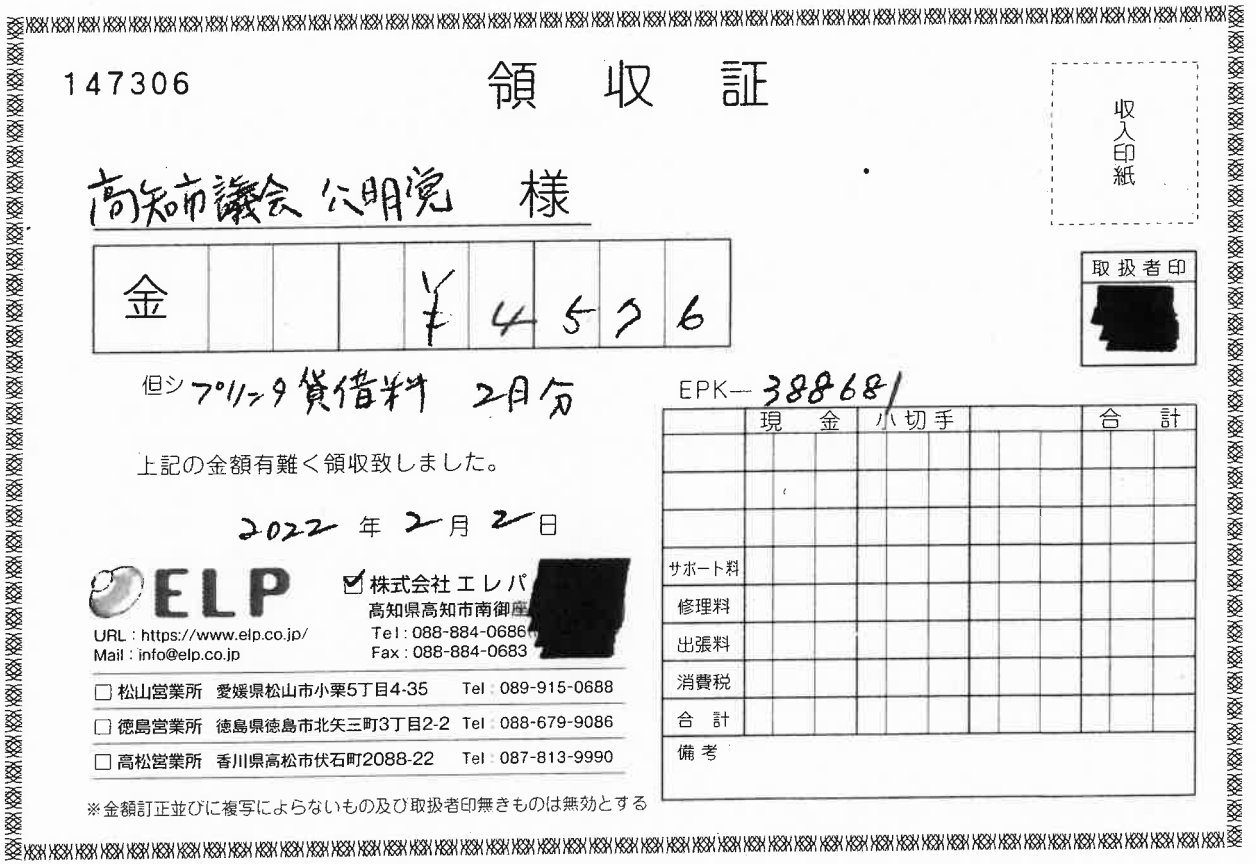 147306
領収証
収入印紙
高知市議会 公明党 様
取扱者印
金 ¥4576
但シ プリンタ賃借料 2月分
EPK―388681
現金 小切手 合計
上記の金額有難く領収致しました。
2022年2月2日
サポート料
修理料
出張料
消費税
合計
備考
ELP
URL：https://www.elp.co.jp/
Mail：info@elp.co.jp
株式会社エレパ
高知県高知市南御座
Tel：088-884-0686
Fax：088-884-0683
松山営業所 愛媛県松山市小栗5丁目4-35 Tel：089-915-0688
徳島営業所 徳島県徳島市北矢三町3丁目2-2 Tel：088-679-9086
高松営業所 香川県高松市伏石町2088-22 Tel：087-813-9990
※金額訂正並びに複写によらないもの及び取扱者印無きものは無効とする